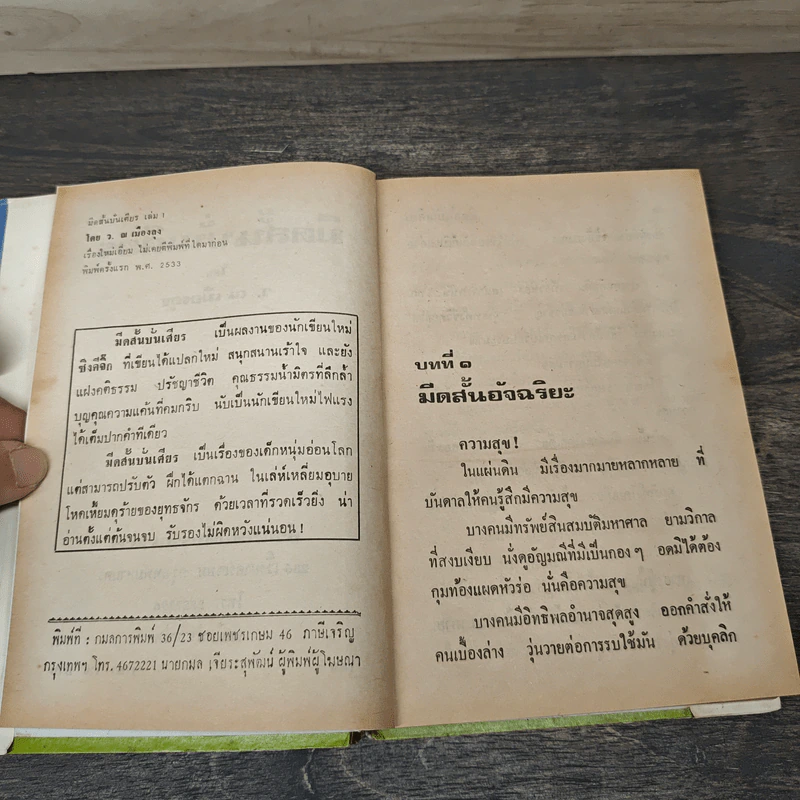 มีดสั้นบันเศียร เล่ม 1
โดย ว. ณ เมืองลุง
เรื่องใหม่เอี่ยม ไม่เคยตีพิมพ์ที่ใดมาก่อน
พิมพ์ครั้งแรก พ.ศ. 2533
มีดสั้นบันเศียร เป็นผลงานของนักเขียนใหม่
ซิงคีจิ๊ก ที่เขียนได้แปลกใหม่ สนุกสนานเร้าใจ และยัง
แฝงคติธรรม ปรัชญาชีวิต คุณธรรมน้ำมิตรที่ลึกล้ำ
บุญคุณความแค้นที่คมกริบ นับเป็นนักเขียนใหม่ไฟแรง
ได้เต็มปากคำทีเดียว
มีดสั้นบันเศียร เป็นเรื่องของเด็กหนุ่มอ่อนโลก
แต่สามารถปรับตัว ฝึกได้แตกฉาน ในเล่ห์เหลี่ยมอุบาย
โหดเหี้ยมดุร้ายของยุทธจักร ด้วยเวลาที่รวดเร็วยิ่ง น่า
อ่านตั้งแต่ต้นจนจบ รับรองไม่ผิดหวังแน่นอน!
พิมพ์ที่ : กมลการพิมพ์ 36/23 ซอยเพชรเกษม 46 ภาษีเจริญ
กรุงเทพฯ โทร. 4672221 นายกมล เจียระสุพัฒน์ ผู้พิมพ์ผู้โฆษณา
บทที่ ๑
มีดสั้นอัจฉริยะ
ความสุข!
ในแผ่นดิน มีเรื่องมากมายหลากหลาย ที่
บันดาลให้คนรู้สึกมีความสุข
บางคนมีทรัพย์สินสมบัติมหาศาล ยามวิกาล
ที่สงบเงียบ นั่งดูอัญมณีที่มีเป็นกองๆ อดมิได้ต้อง
กุมท้องแผดหัวร่อ นั่นคือความสุข
บางคนมีอิทธิพลอำนาจสุดสูง ออกคำสั่งให้
คนเบื้องล่าง วุ่นวายต่อการรบใช้มัน ด้วยบุคลิก